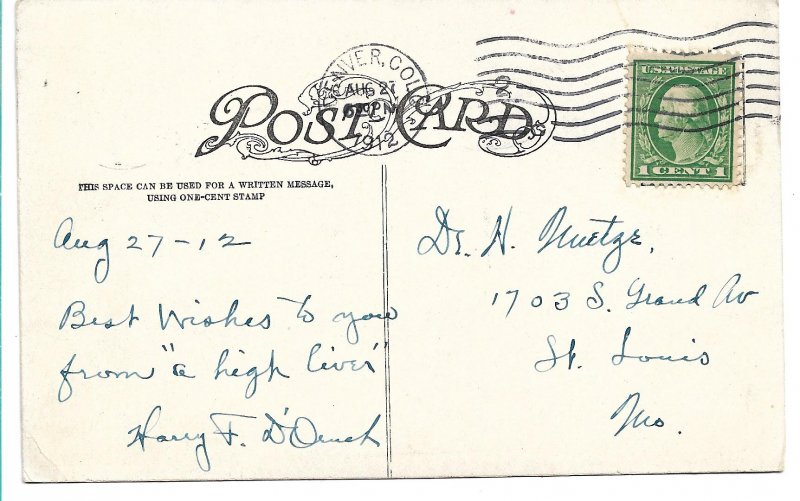 DENVER, COLO.
AUG 27
6 PM
1912
2
POST CARD
U.S. POSTAGE
1 CENT 1
THIS SPACE CAN BE USED FOR A WRITTEN MESSAGE,
USING ONE-CENT STAMP
Aug 27-12
Best Wishes to you
from "a high liver"
Harry F. D'Oench
Dr. H. Nietzge,
1703 S. Grand Av
St. Louis
Mo.